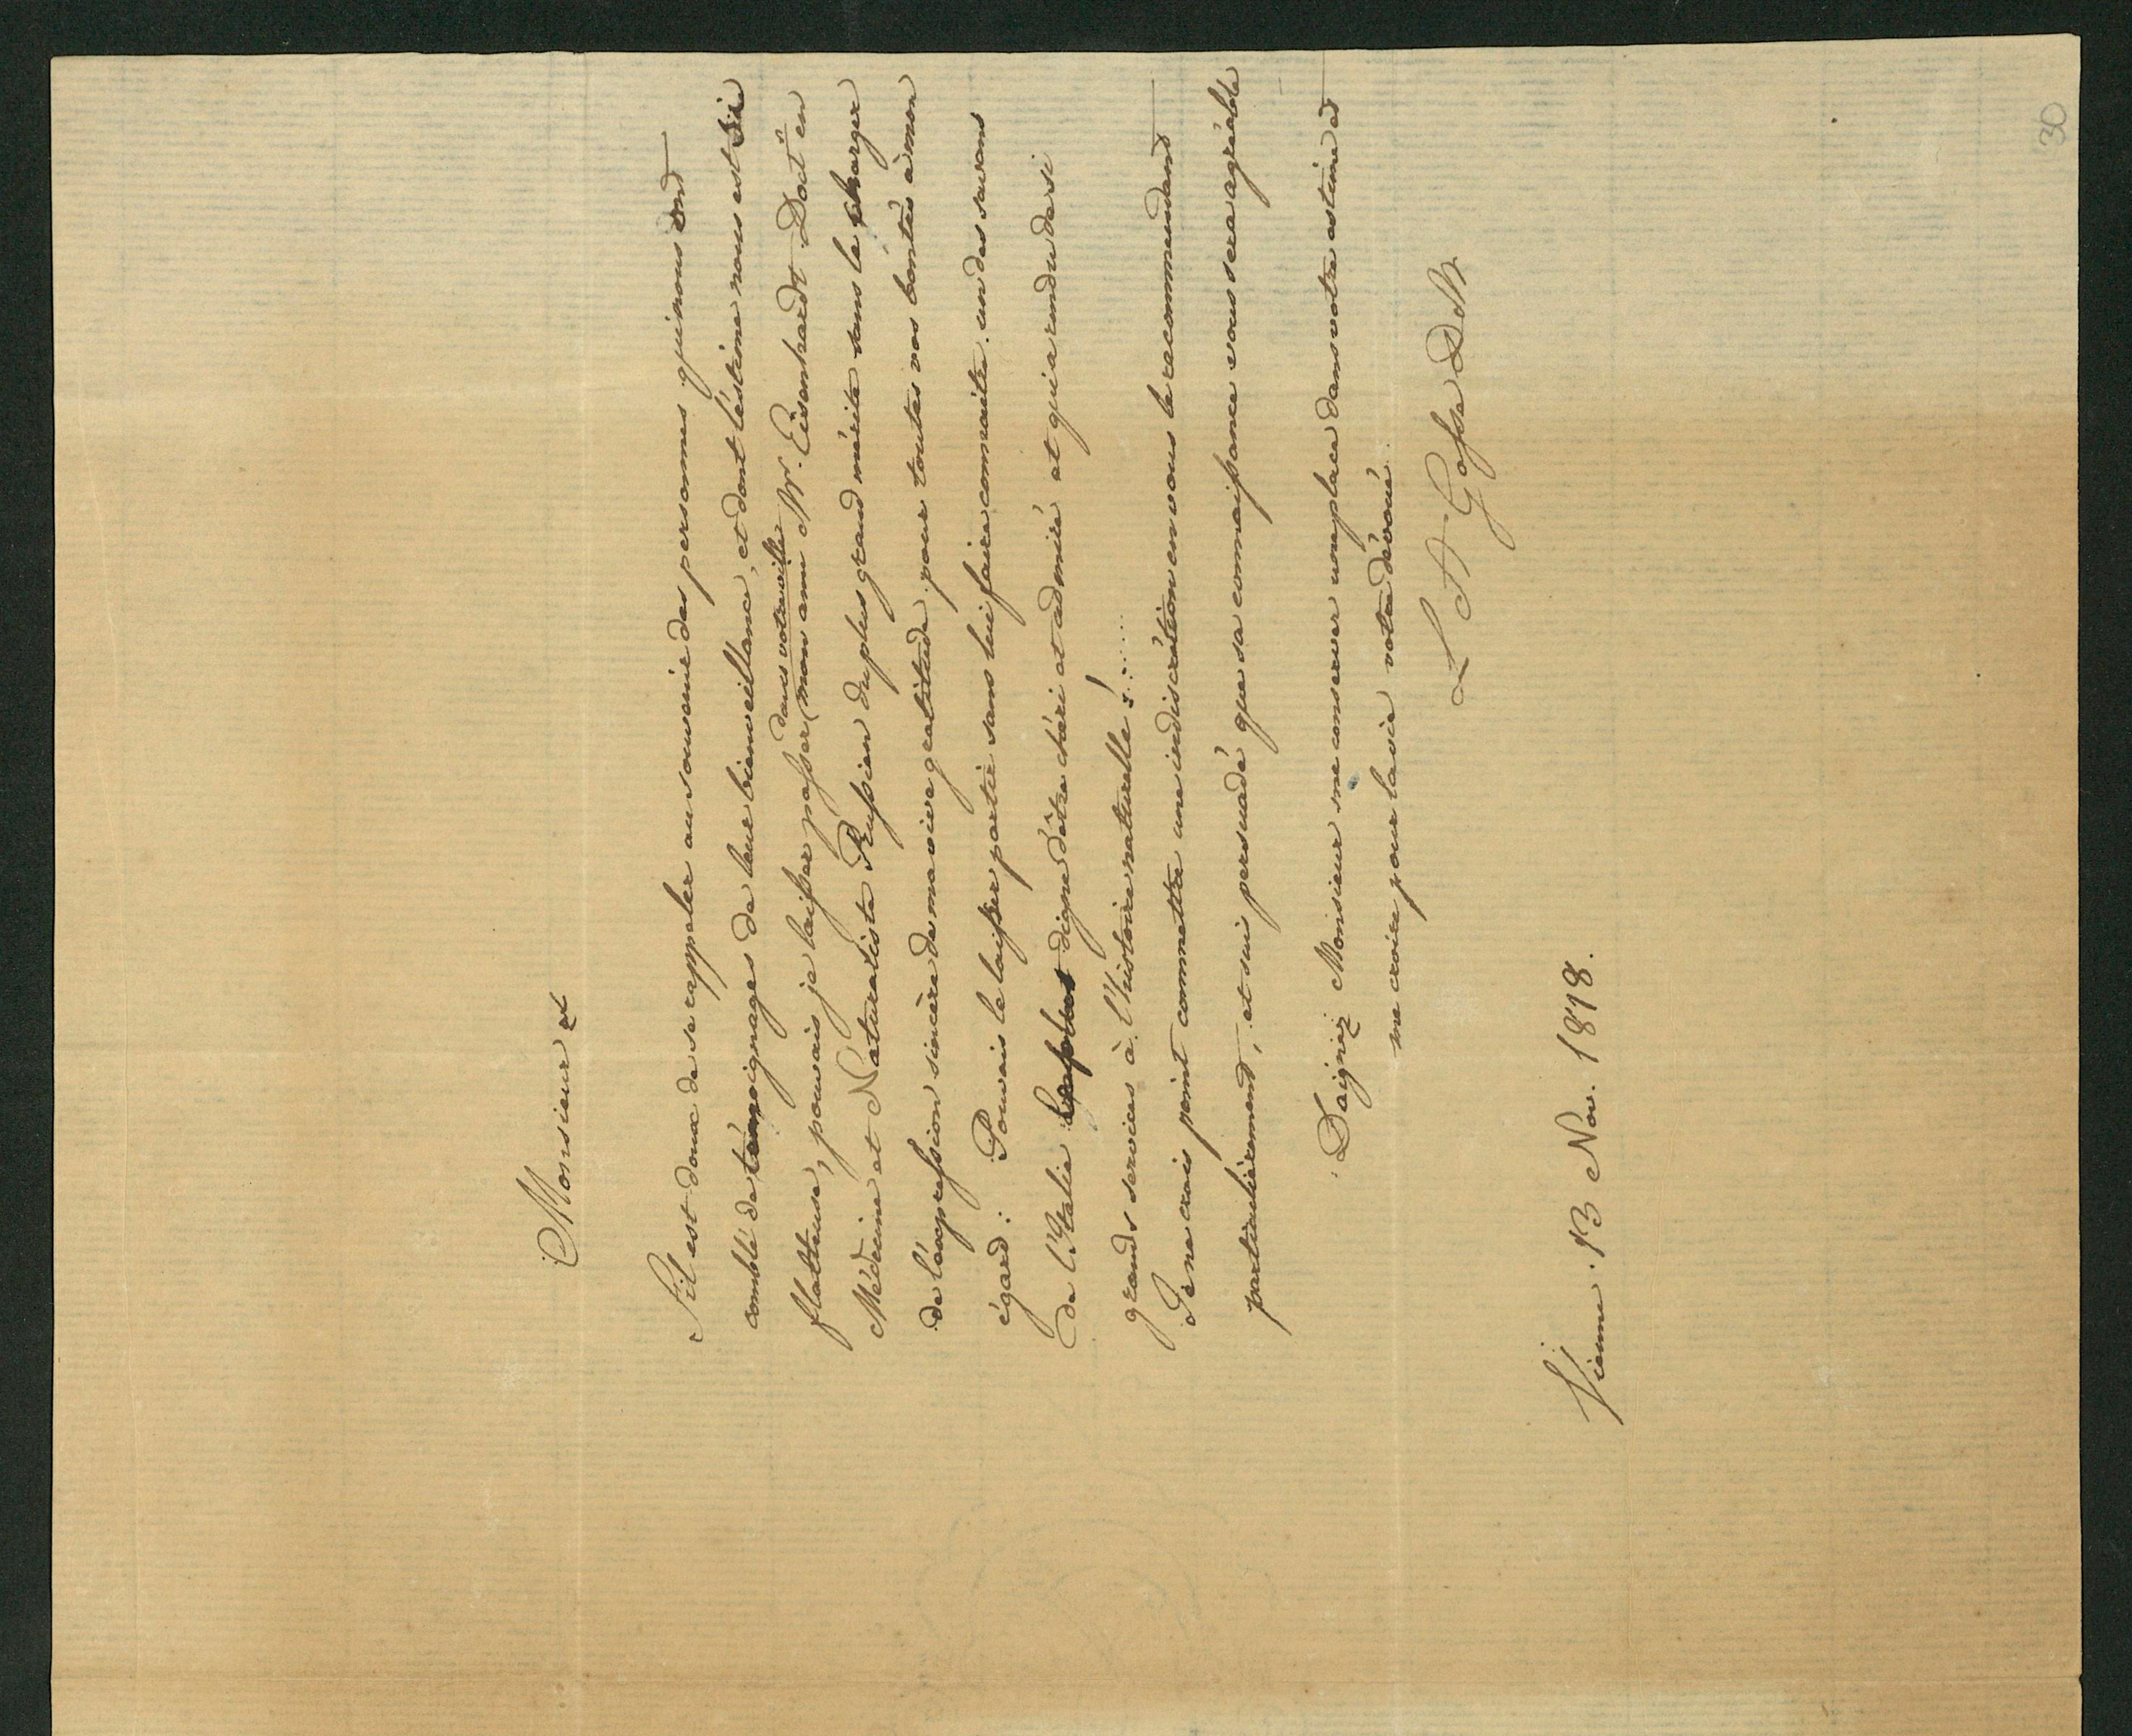 30
Monsieur &
S'il est doux de se rappeler au souvenir des personnes qui nous ont
comblé de témoignages de leur bienveillance, et dont l'estime nous est si
flatteuse, pouvais je laisser passer dans votre ville mon ami Mr. Eisenhardt Doctr en
Médecine et Naturaliste Prussien du plus grand mérite sans le charger
de l'expression sincère de ma vive gratitude pour toutes vos bontés à mon
égard: Pouvais le laisser partir sans lui faire connaitre un des savans
de l'Italie digne d'être chéri et admiré et qui a rendu de si
grands services à l'histoire naturelle!......
Je ne crois point commettre une indiscrétion en vous le recommandant
particulièrement, et suis persuadé que sa connaissance vous sera agréable
Daignez Monsieur me conserver une place dans votre estime et
me croire pour la vie votre dévoué
L A Gosse DM.
Vienne. 13 Nov. 1818.